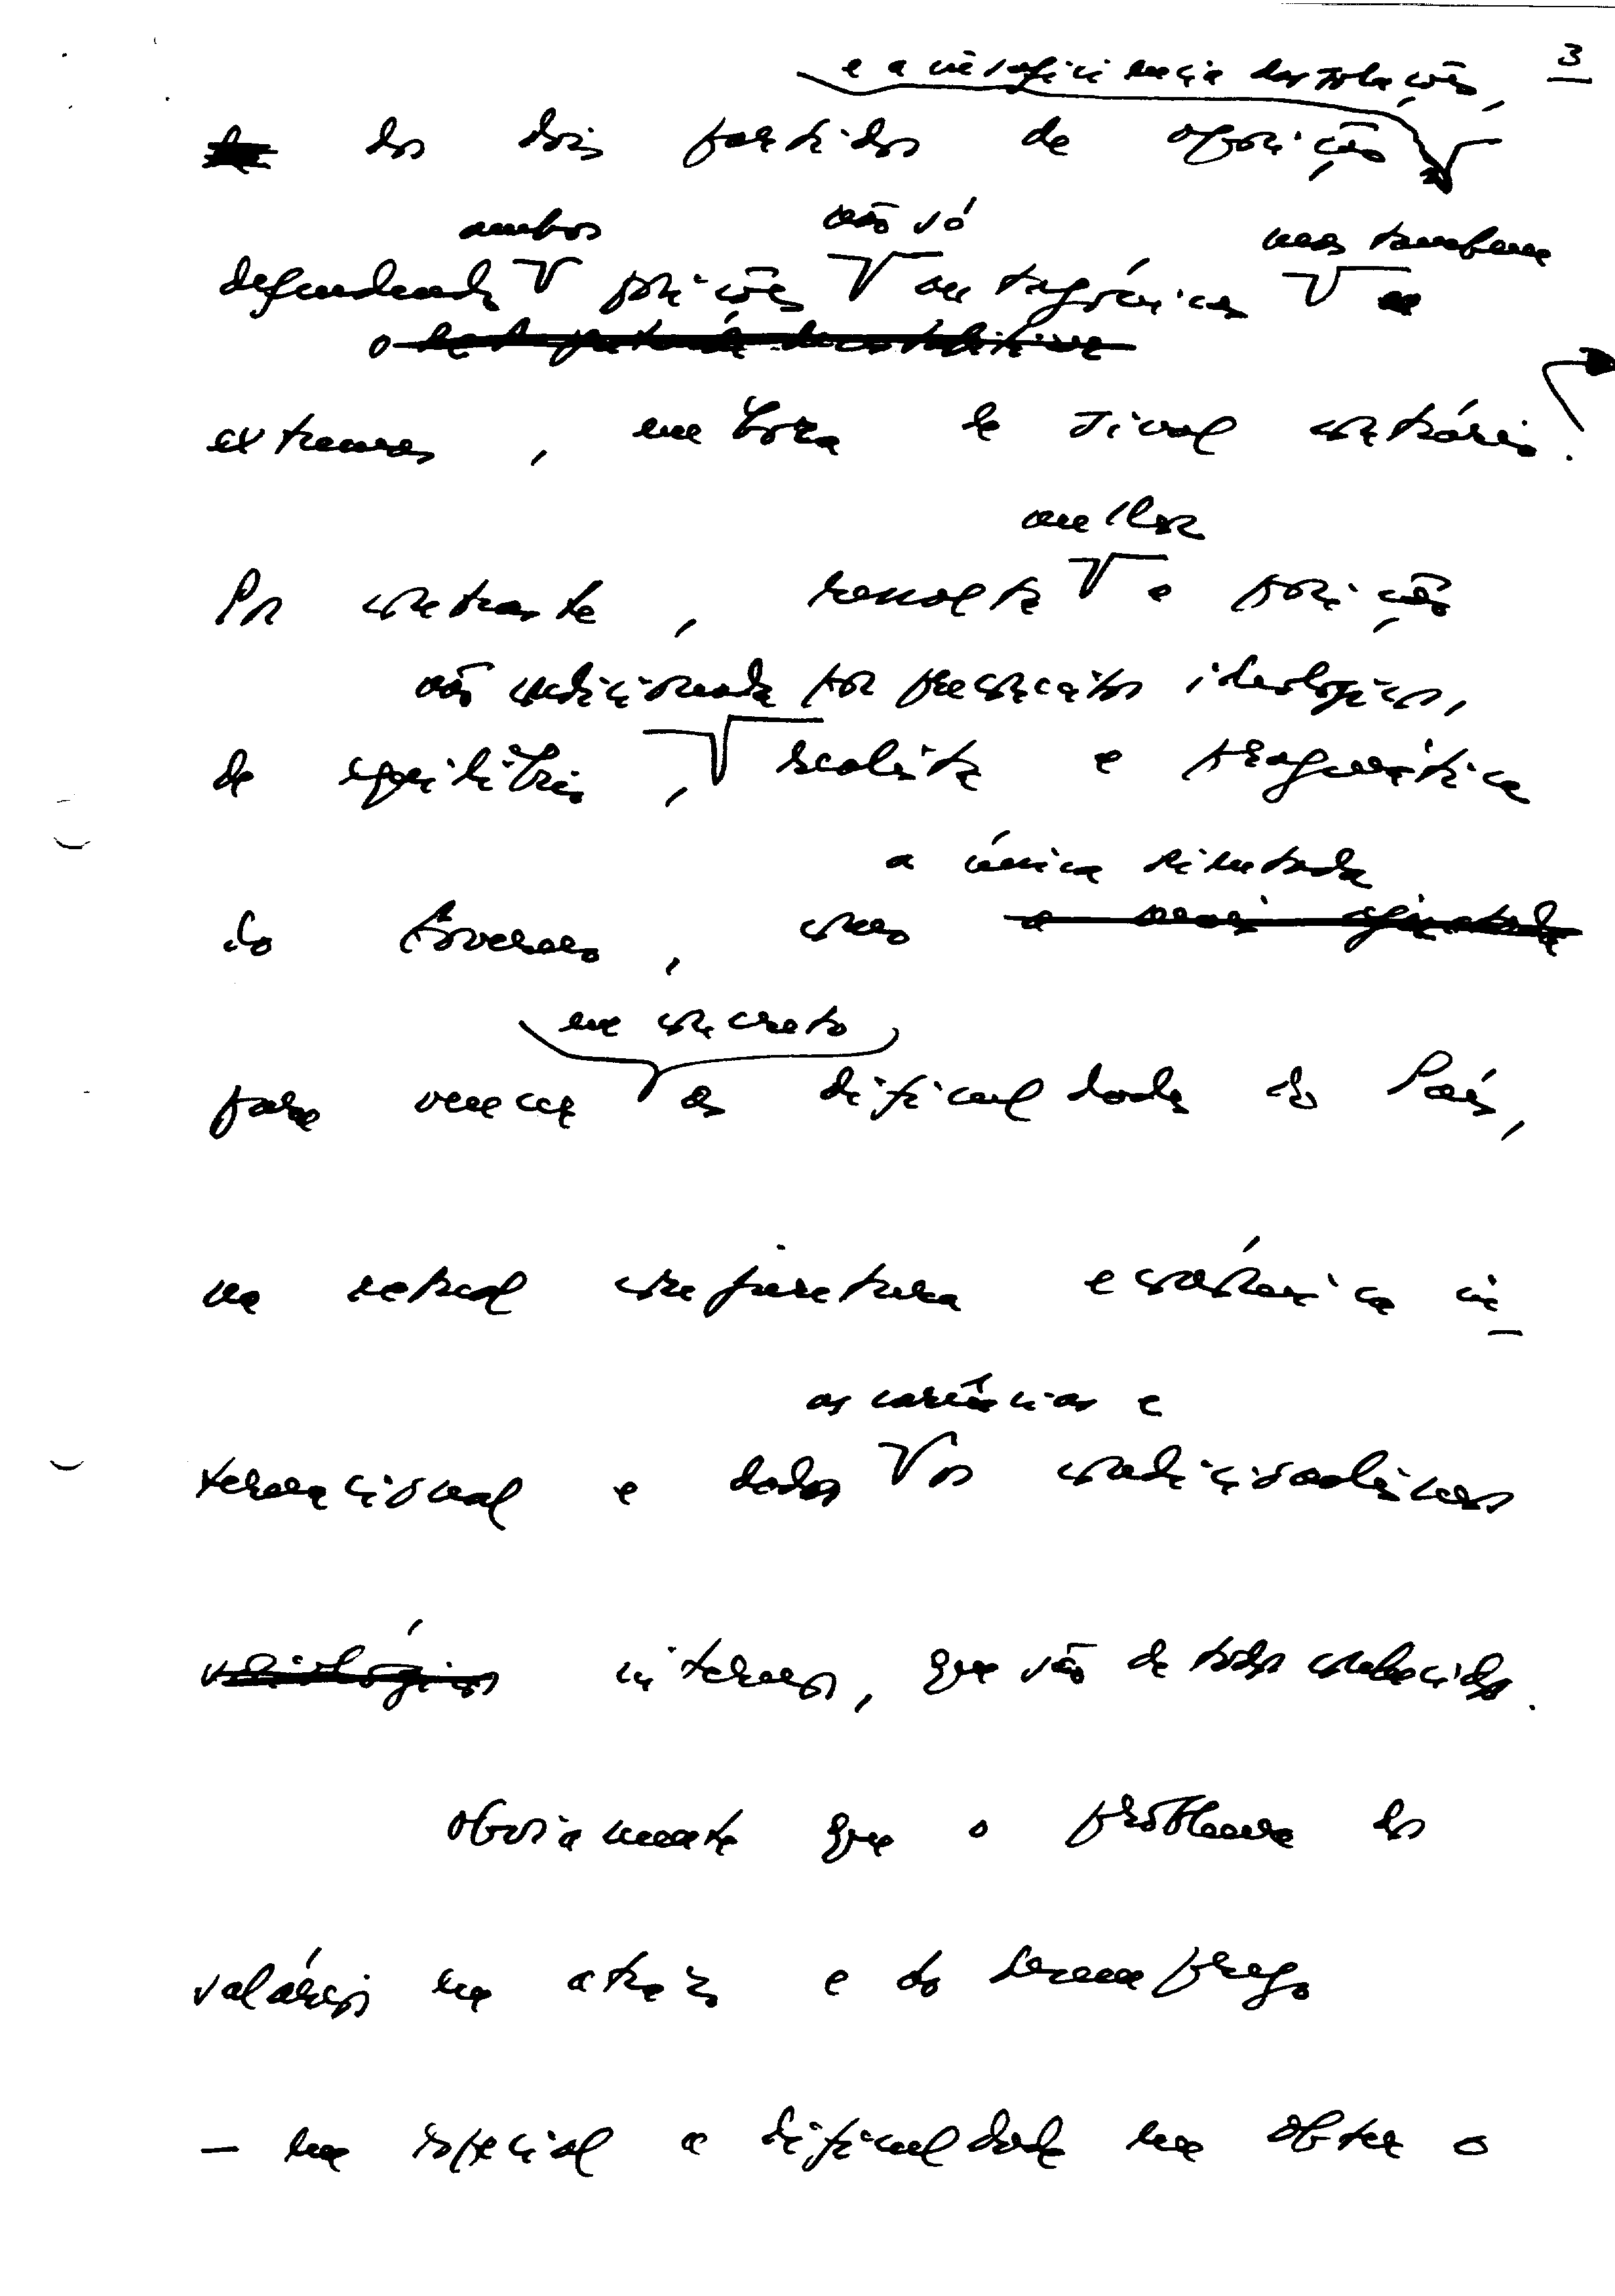 3
e a insuficiencia das soluções,
dos dois partidos de oposição
ambos não só mas tambem
defendendo posições antagónicas
extremas, embora de sinal contrário.
melhor
Por contraste, ressalta a posição
não condicionada por preconceitos ideológicos,
de equilíbrio, realista e pragmática
a única
do Governo, como
em concreto
para vencer as dificuldades do País,
na actual conjuntura económica in-
as carências e
ternacional e dados os condicionalismos
internos, que são de todos conhecidos.
Obviamente que o problema dos
salários em atraso e do desemprego
— em especial a dificuldade em obter o